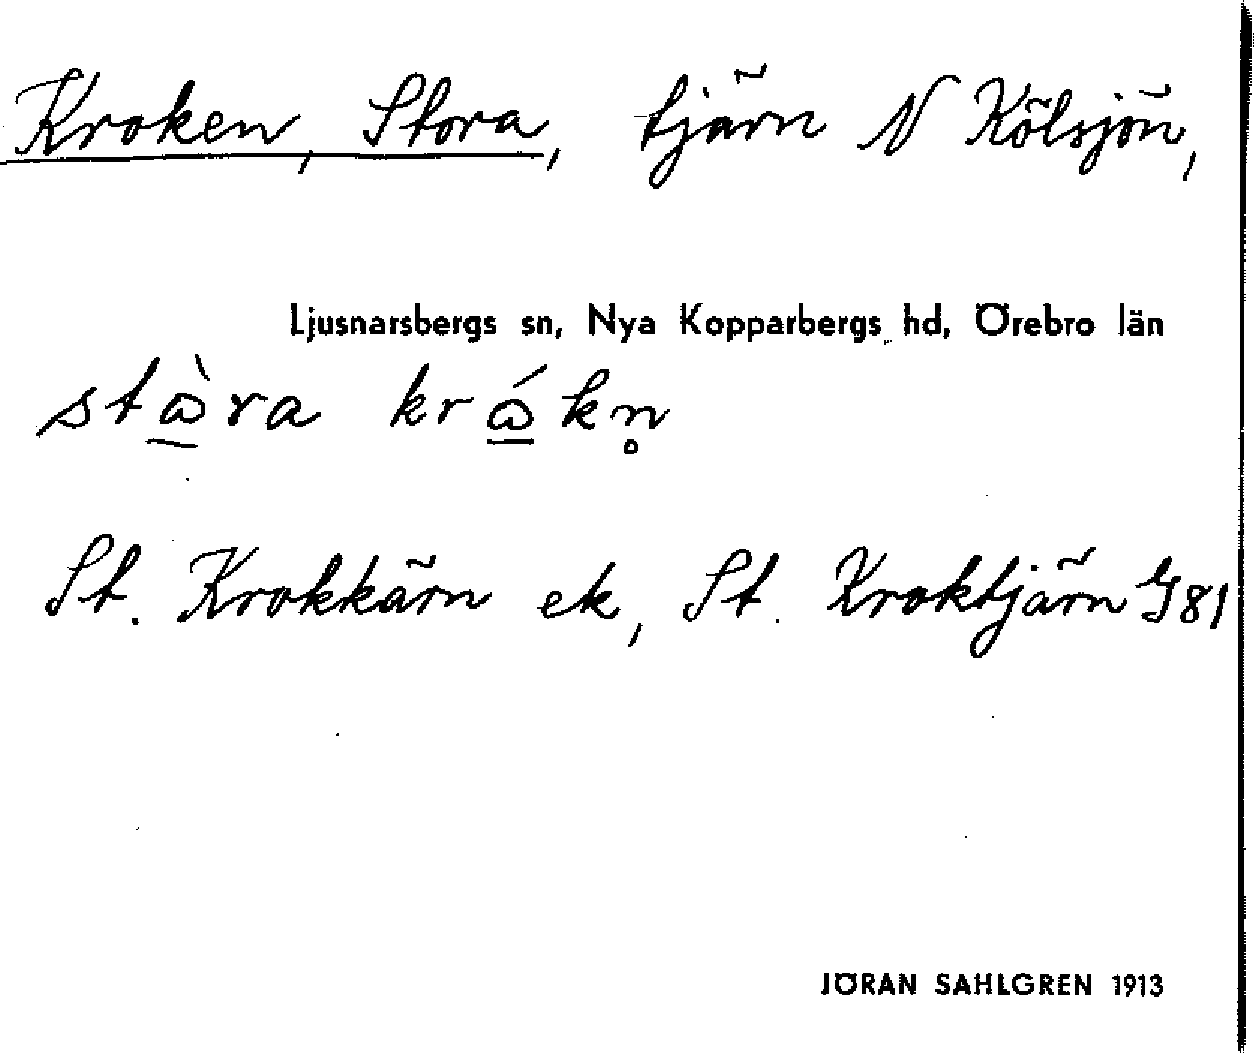 Kroken, Stora, tjärn N Kölsjön,
Ljusnarsbergs sn, Nya Kopparbergs hd, Örebro län
stɷ̠̀ra krɷ̠́kn̥
St. Krokkärn ek, St. Kroktjärn G81
JÖRAN SAHLGREN 1913